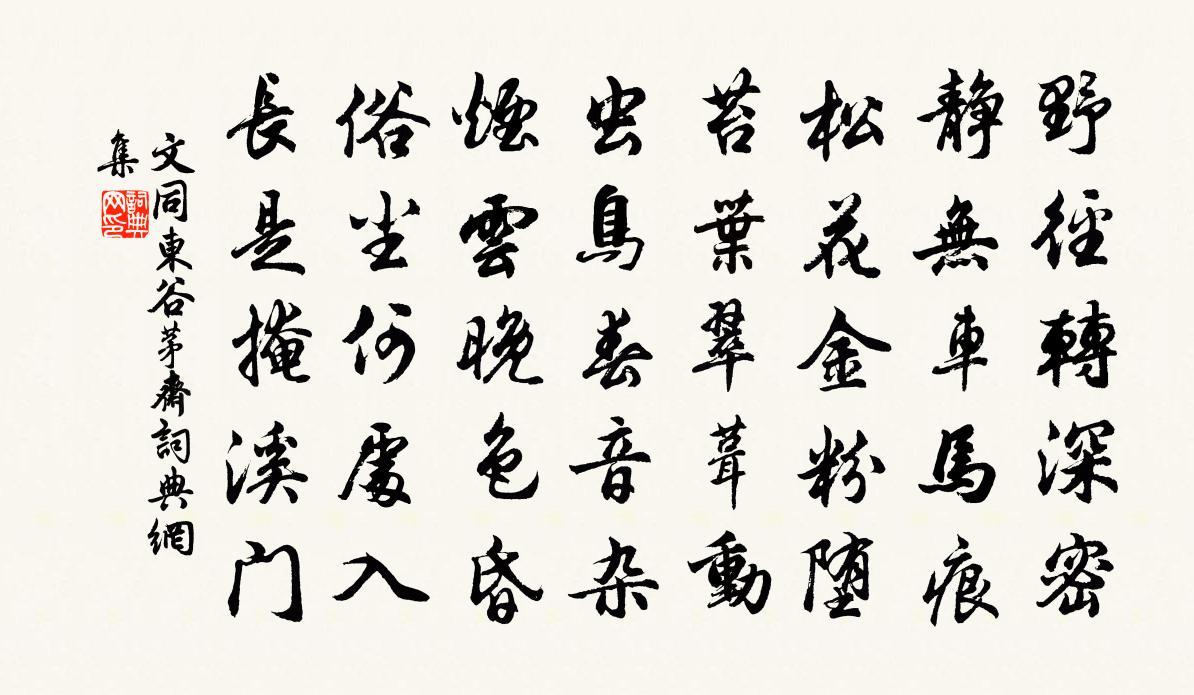 野徑轉深密
静無車馬痕
松花金粉堕
苔葉翠茸動
虫鳥春音杂
煙雲晚色昏
俗尘何處入
長是掩溪门
文同東谷茅齋詞典網
集
詞典网印